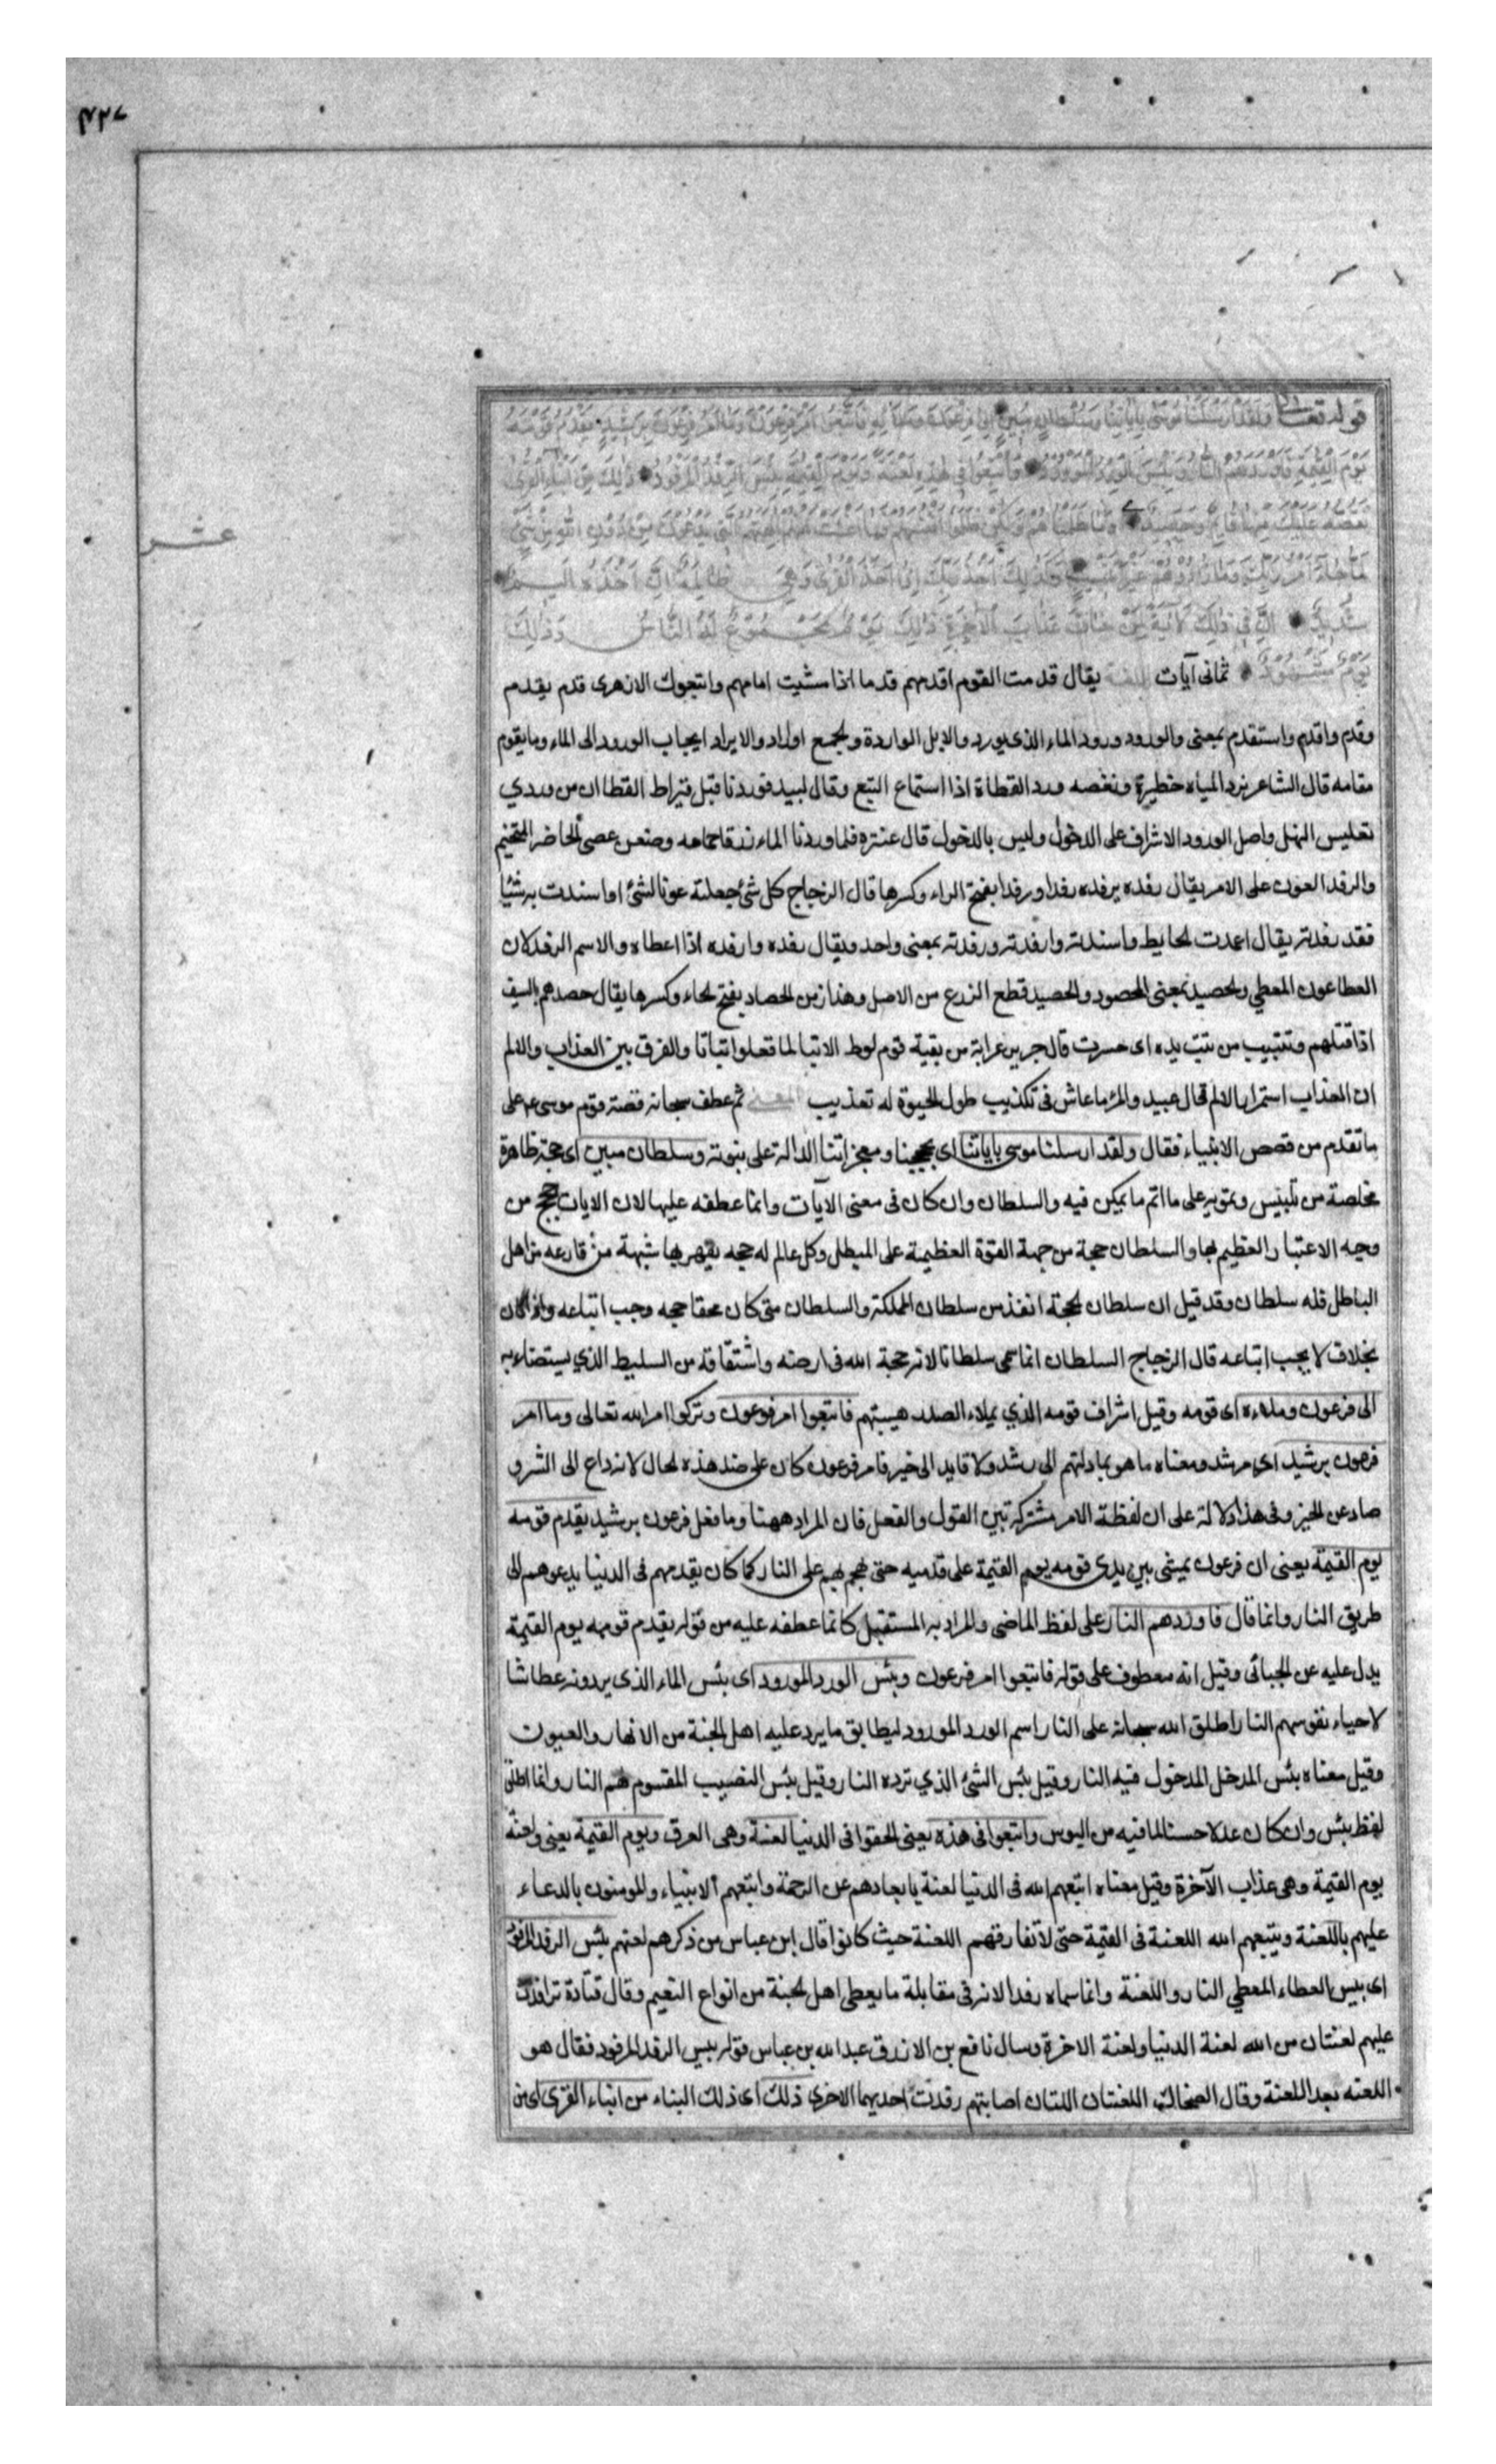 قوله تعالى وَلَقَدْ اَرْسَلْنَا مُوسٰى بِاٰيَاتِنَا وَسُلْطَانٍ مُبِينٍ اِلٰى فِرْعَوْنَ وَمَلَائِهِ فَاتَّبَعُوا اَمْرَ فِرْعَوْنَ وَمَا اَمْرُ فِرْعَوْنَ بِرَشِيدٍ يَقْدُمُ قَوْمَهُ
يَوْمَ الْقِيٰمَةِ فَاَوْرَدَهُمُ النَّارَ وَبِئْسَ الْوِرْدُ الْمَوْرُودُ وَاُتْبِعُوا فِى هٰذِهِ لَعْنَةً وَيَوْمَ الْقِيٰمَةِ بِئْسَ الرِّفْدُ الْمَرْفُودُ ذٰلِكَ مِنْ اَنْبَاءِ الْقُرٰى
نَقُصُّهُ عَلَيْكَ مِنْهَا قَائِمٌ وَحَصِيدٌ وَمَا ظَلَمْنَاهُمْ وَلٰكِنْ ظَلَمُوا اَنْفُسَهُمْ فَمَا اَغْنَتْ عَنْهُمْ اٰلِهَتُهُمُ الَّتِى يَدْعُونَ مِنْ دُونِ اللهِ مِنْ شَىْءٍ
لَمَّا جَاءَ اَمْرُ رَبِّكَ وَمَا زَادُوهُمْ غَيْرَ تَتْبِيبٍ وَكَذٰلِكَ اَخْذُ رَبِّكَ اِذَا اَخَذَ الْقُرٰى وَهِىَ ظَالِمَةٌ اِنَّ اَخْذَهُ اَلِيمٌ
شَدِيدٌ اِنَّ فِى ذٰلِكَ لَاٰيَةً لِمَنْ خَافَ عَذَابَ الْاٰخِرَةِ ذٰلِكَ يَوْمٌ مَجْمُوعٌ لَهُ النَّاسُ وَذٰلِكَ
يَوْمٌ مَشْهُودٌ ثمانى آيات اللغة يقال قدمت القوم اقدمهم قدما اذا مشيت امامهم واتبعوك الازهرى قدم يقدم
وقدم واقدم واستقدم بمعنى والورود ورود الماء الذى يورد والابل الواردة والجمع اوراد والايراد ايجاب الورود الى الماء وما يقوم
مقامه قال الشاعر يرد المياه حظيرة ونغصه ورد القطاة اذا استماع التبع وقال لبيد فوردنا قبل فراط القطا ان من وردي
تغليس النهل واصل الورود الاشراف على الدخول وليس بالدخول قال عنتره فلما وردنا الماء زرقا جمامه وضعن عصى الحاضر المتخيم
والرفد العون على الامر يقال رفده يرفده رفدا ورفدا بفتح الراء وكسرها قال الزجاج كل شئ جعلته عونا لشئ او اسندت به شيئا
فقد رفدته يقال اعمدت الحايط واسندته وارفدته ورفدته بمعنى واحد ويقال رفده وارفده اذا اعطاه والاسم الرفد لان
العطا عون المعطي والحصيد بمعنى المحصود والحصيد قطع الزرع من الاصل وهذا زمن الحصاد بفتح الحاء وكسرها يقال حصدهم بالسيف
اذا قتلهم وتتبيب من تبت يده اى خسرت قال جرير عرابة من بقية قوم لوط الا تبا لما فعلوا تبابا والفرق بين العذاب والالم
ان العذاب استمرار الالم قال عبيد والمرء ما عاش فى تكذيب طول الحيوة له تعذيب المعنى ثم عطف سبحانه قصة قوم موسى عم على
ما تقدم من قصص الانبياء فقال ولقد ارسلنا موسى باياتنا اى بحججنا ومعجزاتنا الدالة على نبوته وسلطان مبين اى حجة ظاهرة
مخلصة من تلبيس وتمويه على ما اتم ما يمكن فيه والسلطان وان كان فى معنى الآيات وانما عطفه عليها لان الايات حجج من
وجه الاعتبار العظيم بها والسلطان حجة من جهة القوة العظيمة على المبطل وكل عالم له حجه يقهر بها شبهة من قارعه من اهل
الباطل فله سلطان وقد قيل ان سلطان الحجة انفذ من سلطان المملكة والسلطان متى كان محقا حجه وجب اتباعه واذا كان
بخلافه لا يجب اتباعه قال الزجاج السلطان انما سمى سلطانا لانه حجة الله فى ارضه واشتقاقه من السليط الذي يستضاء به
الى فرعون وملاءه اى قومه وقيل اشراف قومه الذي يملاء الصدر هيبتهم فاتبعوا امر فرعون وتركوا امر الله تعالى وما امر
فرعون برشيد اى مرشد ومعناه ما هو بهاد لهم الى رشد ولا قايد الى خير فامر فرعون كان على ضد هذه الحال لانه داع الى الشر و
صاد عن الخير وفى هذا دلالة على ان لفظة الامر مشتركة بين القول والفعل فان المراد ههنا وما فعل فرعون برشيد يقدم قومه
يوم القيمة يعنى ان فرعون يمشى بين يدى قومه يوم القيمة على قدميه حتى يهجم بهم على النار كما كان يقدمهم فى الدنيا يدعوهم الى
طريق النار وانما قال فاوردهم النار على لفظ الماضى والمراد به المستقبل كانما عطفه عليه من قوله يقدم قومه يوم القيمة
يدل عليه عن الجبائى وقيل انه معطوف على قوله فاتبعوا امر فرعون وبئس الورد المورود اى بئس الماء الذى يردونه عطاشا
لاحياء نفوسهم النار اطلق الله سبحانه على النار اسم الورد المورود ليطابق ما يرد عليه اهل الجنة من الانهار والعيون
وقيل معناه بئس المدخل المدخول فيه النار وقيل بئس الشئ الذي ترده النار وقيل بئس النصيب المقسوم لهم النار وانما اطلق
لفظ بئس وان كان عدلا حسنا لما فيه من البوس واتبعوا فى هذه يعنى الحقوا فى الدنيا لعنة وهى الغرق ويوم القيمة يعنى ولعنة
يوم القيمة وهى عذاب الآخرة وقيل معناه اتبعهم الله فى الدنيا لعنة بابعادهم عن الرحمة واتبعهم الانبياء والمومنون بالدعاء
عليهم باللعنة ويتبعهم الله اللعنة فى القيمة حتى لا تفارقهم اللعنة حيث كانوا قال ابن عباس من ذكرهم لعنهم بئس الرفد المرفود
اى بيس العطاء المعطي النار واللعنة وانما سماه رفدا لانه فى مقابلة ما يعطى اهل الجنة من انواع النعيم وقال قتادة ترافدت
عليهم لعنتان من الله لعنة الدنيا ولعنة الاخرة وسال نافع بن الازرق عبد الله بن عباس قوله بيس الرفد المرفود فقال هو
اللعنه بعد اللعنة وقال الضحاك اللعنتان اللتان اصابتهم رفدت احديهما الاخرى ذلك اى ذلك النباء من انباء القرى اى من
عشر